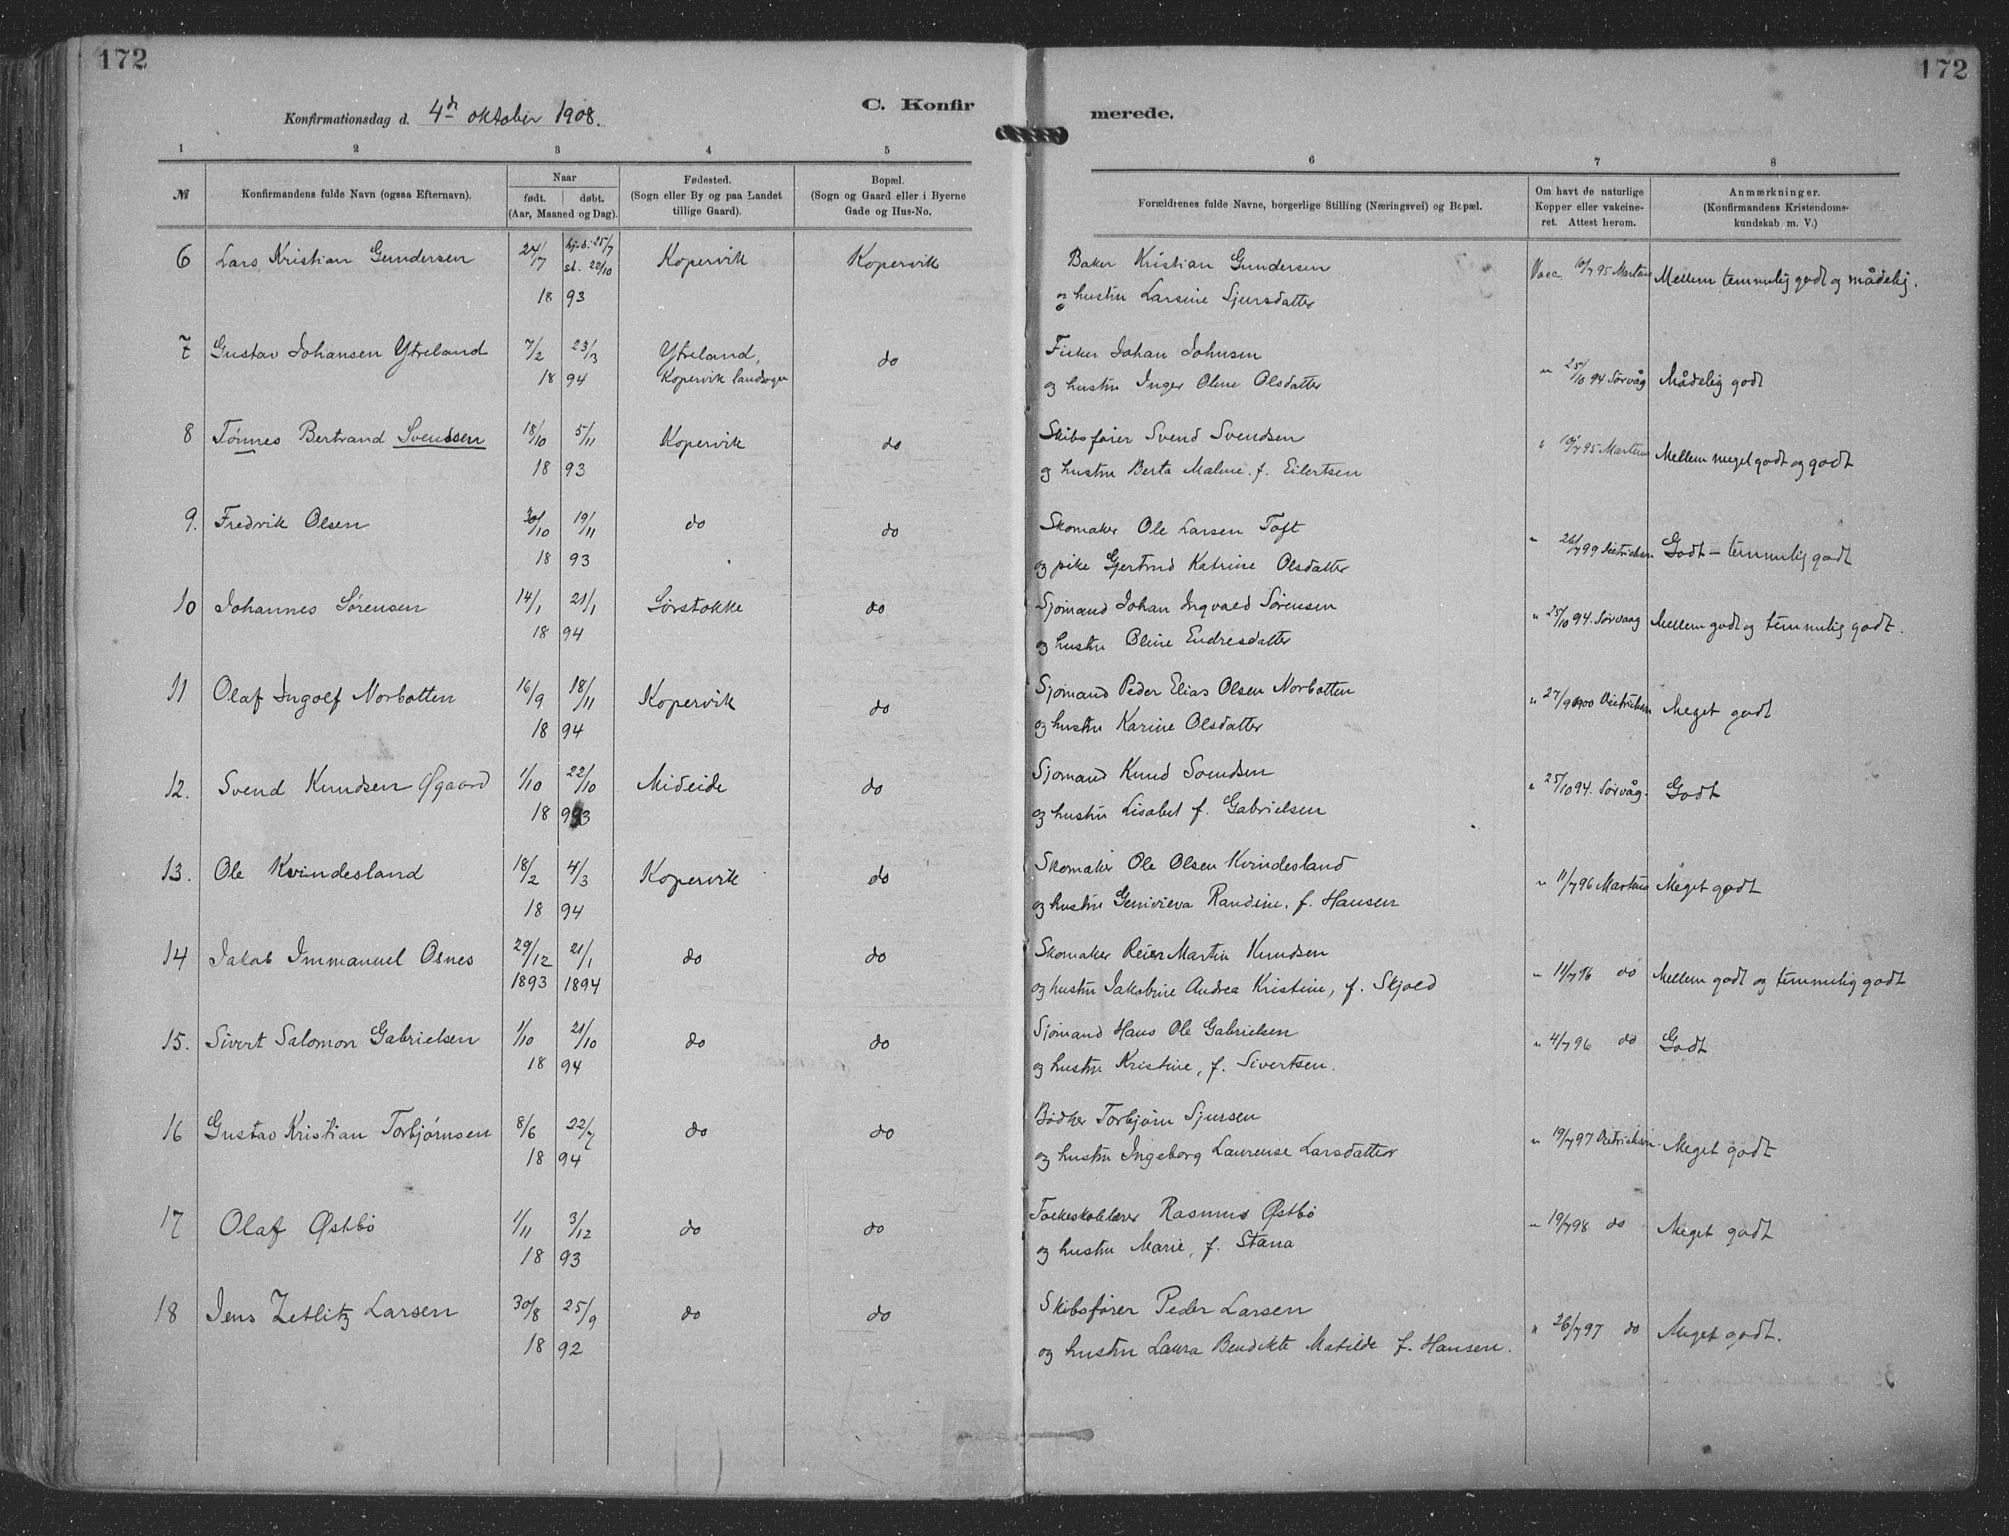 172
172
Konfirmationsdag d. 4de oktober 1908.
C. Konfirmerede.
1 2 3 4 5 6 7 8
№
Konfirmandens fulde Navn (ogsaa Efternavn).
Naar
født. døbt.
(Aar, Maaned og Dag).
Fødested.
(Sogn eller By og paa Landet
tillige Gaard).
Bopæl.
(Sogn og Gaard eller i Byerne
Gade og Hus-No.
Forældrenes fulde Navne, borgerlige Stilling (Næringsvei) og Bopæl.
Om havt de naturlige
Kopper eller vakcine-
ret. Attest herom.
Anmærkninger.
(Konfirmandens Kristendoms-
kundskab m. V.)
6 Lars Kristian Gundersen 24/7 hj.d. 25/7 Kopervik Kopervik Baker Kristian Gundersen Vacc 10/7 95 Martens Mellem temmelig godt og mådelig.
st. 22/10
18 93 og hustru Larsine Sjursdatter
7 Gustav Johansen Ytreland 7/2 23/3 Ytreland, do Fisker Johan Johnsen " 25/10 94 Sørvåg Mådelig godt
18 94 Kopervik landsogn og hustru Inger Oline Olsdatter
8 Tønnes Bertrand Svendsen 18/10 5/11 Kopervik do Skibsfører Svend Svendsen " 10/7 95 Martens Mellem meget godt og godt
18 93 og hustru Berta Maline f. Eilertsen
9. Fredrik Olsen 30/10 19/11 do do Skomaker Ole Larsen Toft " 26/7 99 Dietrichson Godt - temmelig godt
18 93 og pike Gjertrud Katrine Olsdatter
10 Johannes Sørensen 14/1 21/1 Sørstokke do Sjømand Johan Ingvald Sørensen " 25/10 94. Sørvaag Mellem godt og temmelig godt.
18 94 og hustru Oline Endresdatter
11 Olaf Ingolf Norbotten 16/9 18/11 Kopervik do Sjømand Peder Elias Olsen Norbotten " 27/9 1900 Dietrichson Meget godt
18 94 og hustru Karine Olsdatter
12. Svend Knudsen Øgaard 1/10 22/10 Mideide do Sjømand Knud Svendsen " 25/10 94. Sørvåg. Godt
18 93 og hustru Lisabet f. Gabrielsen
13. Ole Kvindesland 18/2 4/3 Kopervik do Skomaker Ole Olsen Kvindesland " 11/7 96 Martens Meget godt
18 94 og hustru Genivieva Randine, f. Hansen
14 Jakob Immanuel Osnes 29/12 21/1 do do Skomaker Reier Martin Knudsen " 11/7 96 do Mellem godt og temmelig godt
1893 1894 og hustru Jakobine Andrea Kristine, f. Skjold
15. Sivert Salomon Gabrielsen 1/10 21/10 do do Sjømand Hans Ole Gabrielsen " 4/7 96 do Godt
18 94 og hustru Kristine, f. Sivertsen.
16 Gustav Kristian Torbjørnsen 8/6 22/7 do do Bødker Torbjørn Sjursen " 19/7 97 Dietrichson. Meget godt
18 94 og hustru Ingeborg Laurense Larsdatter
17 Olaf Østbø 1/11 3/12 do do Folkeskolelærer Rasmus Østbø " 19/7 98 do Meget godt
18 93 og hustru Marie, f. Stana
18 Jens Zetlitz Larsen 30/8 25/9 do do Skibsfører Peder Larsen " 26/7 97 do Meget godt.
18 92 og hustru Laura Bendikte Matilde f. Hansen.